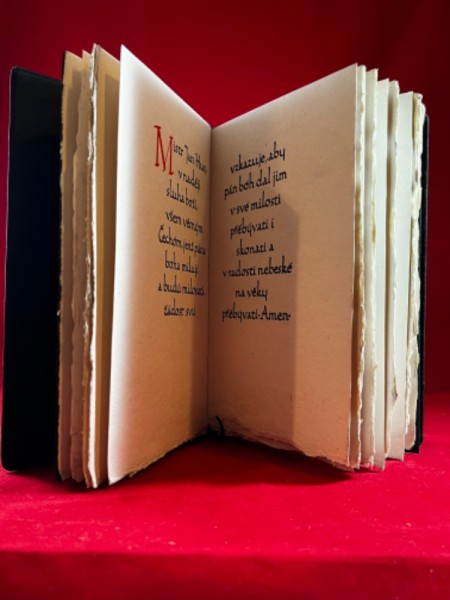 Mistr Jan Hus
v naději
sluha boží
všem věrným
Čechóm, jenž pána
boha milují
a budú milovati
žádost svú
vzkazuje, aby
pán bóh dal jim
v své milosti
přěbývati i
skonati a
v radosti nebeské
na věky
přěbývati·Amen·